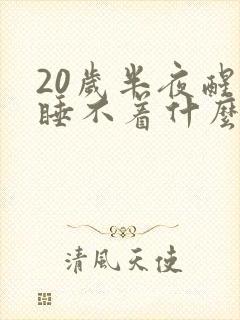 20歲半夜醒
睡不着什麼
清風天使